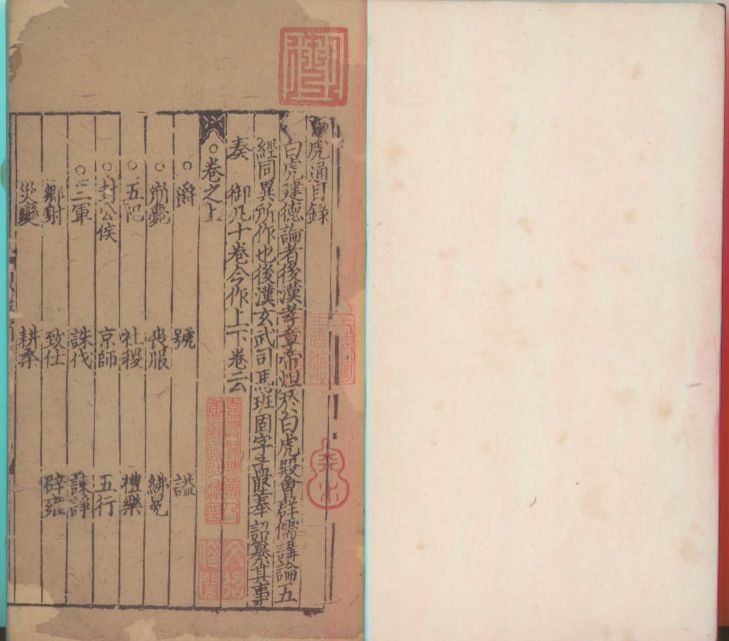 虎通目録
白虎建德論者後漢孝章帝坦於白虎殿會群儒講論五
經同異所作也後漢玄武司馬班固字孟堅奉 詔纂其事
奏 御乃十卷今作上下卷云
卷之上
○爵 號 諡
○ 喪服 紼冕
○五祀 社稷 禮樂
○封公侯 京師 五行
○三軍 誅伐 諫諍
鄉射 致仕 辟雍
災變 耕桑